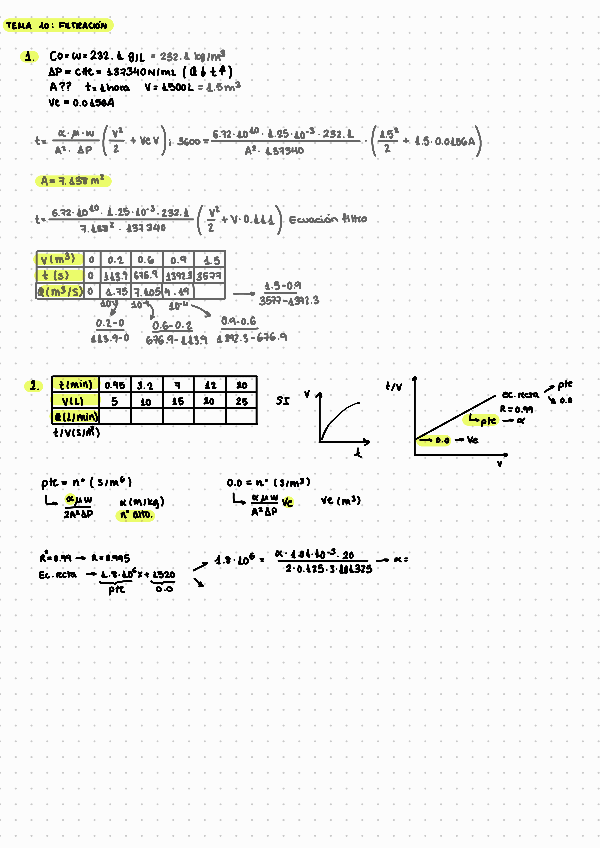 TEMA 10: FILTRACIÓN
1. Co=W= 232.1 g/L = 232.1 kg/m³
ΔP = Cte = 137340 N/m2 (Q↓ t↑)
A?? t= 1 hora V= 1500L = 1.5 m³
Ve = 0.0156A
t= α·μ·w / A²·ΔP (V²/2 + Ve V); 3600 = 6.72·10¹⁰·1.25·10⁻³·232.1 / A²·137340 · (1.5²/2 + 1.5·0.0156A)
A= 7.138 m²
t= 6.72·10¹⁰·1.25·10⁻³·232.1 / 7.138²·137340 (V²/2 + V·0.111) Ecuación filtro
V(m³) 0 0.2 0.6 0.9 1.5
t (s) 0 113.9 676.9 1392.3 3577
Q(m³/s) 0 1.75 7.105 4.19
1.5-0.9 / 3577-1392.3
0.2-0 / 113.9-0
0.6-0.2 / 676.9-113.9
0.9-0.6 / 1392.3-676.9
2. t(min) 0.95 3.2 7 12 20
V(L) 5 10 15 20 25
Q(L/min)
t/V(s/m³)
SI
V
t
t/V
V
Ec. recta
pte
0.0
R= 0.99
pte → α
0.0 → Ve
pte = nº (s/m⁶)
αμw / 2A²ΔP
α (m/kg)
nº alto.
0.0 = nº (s/m³)
αμw / A²ΔP Ve
Ve (m³)
R²=0.99 → R=0.995
Ec. recta → 1.8·10⁶x + 1520
pte 0.0
1.8·10⁶ = α·1.01·10⁻³·20 / 2·0.125·3·101325 → α=